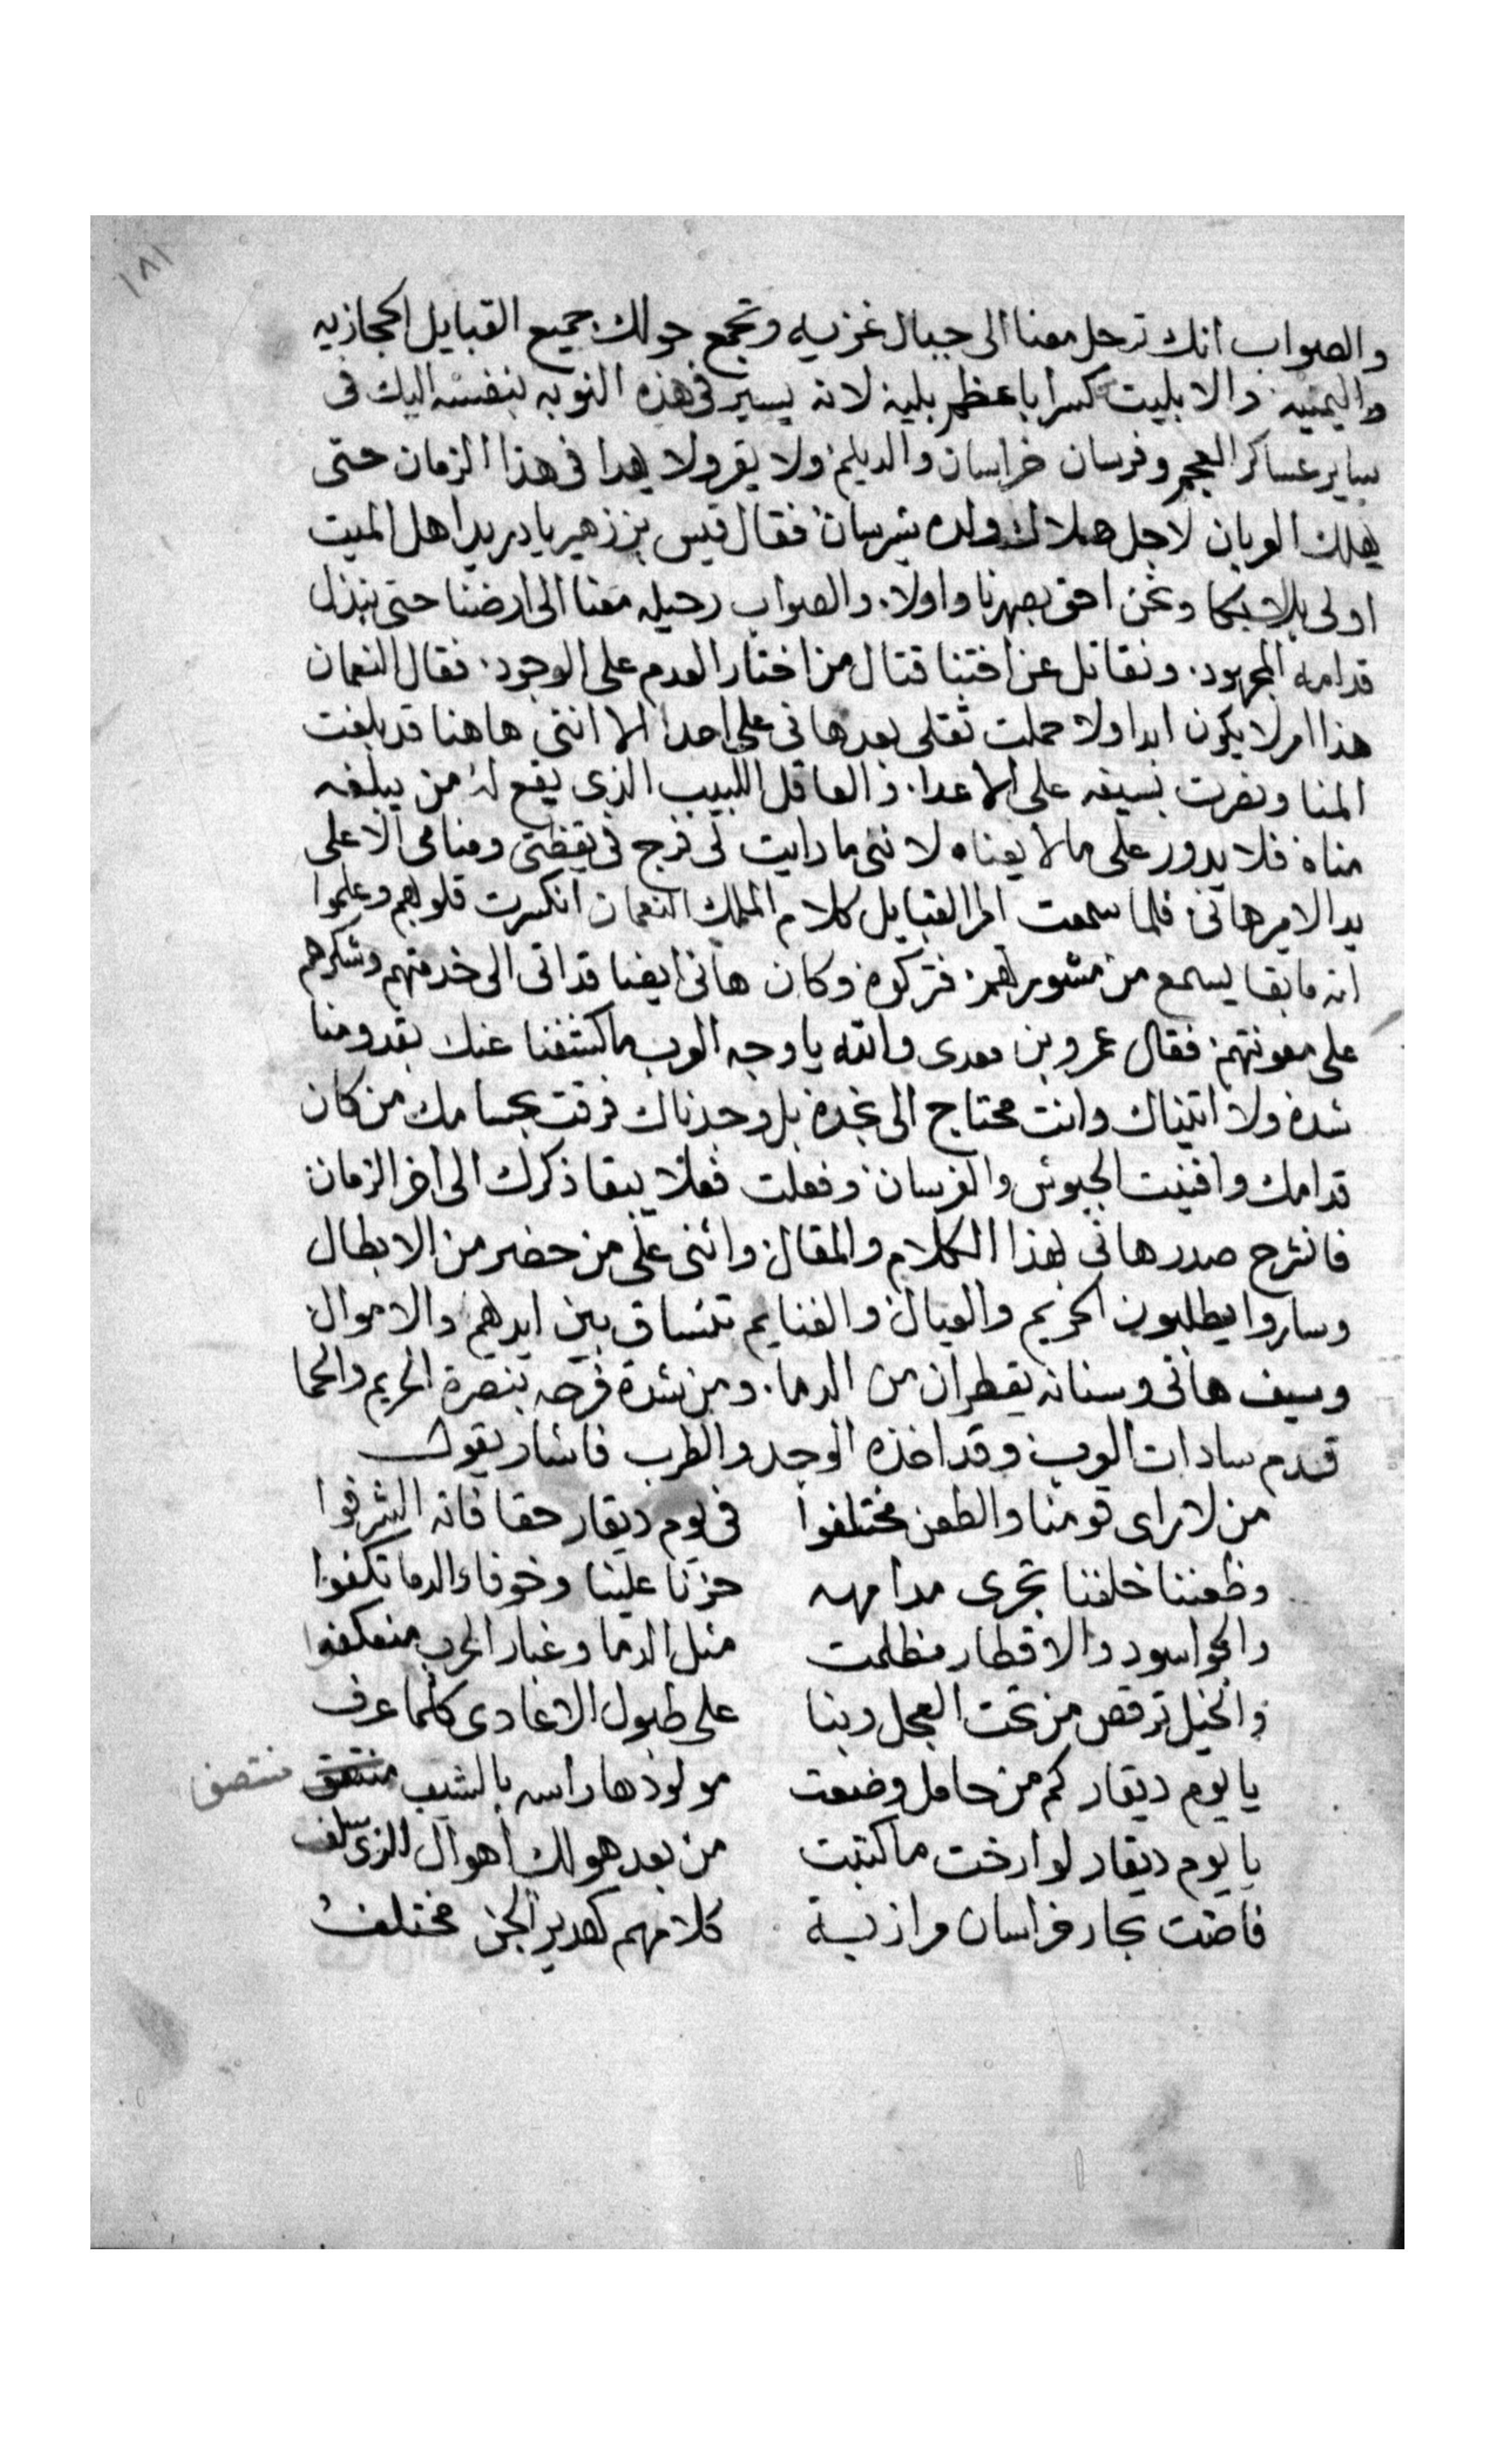 ١٨١
والصواب انك ترحل معنا الى جبال غزيه وتجمع حولك جميع القبايل الحجازيه
واليمنيه والا بليت كسرا باعظم بليه لانه يسير في هذه النوبه بنفسه اليك فى
ساير عساكر العجم وفرسان خراسان والديلم ولا يقر ولا يهدا فى هذا الزمان حتى
يهلك العربان لاجل هلاك ولده شرسان فقال قيس بن زهير يا دريد اهل الميت
اولى بالبكا ونحن احق بصهرنا واولا والصواب رحيله معنا الى ارضنا حتى نبذل
قدامه المجهود ونقاتل عن اختنا قتال من اختار العدم على الوجود فقال النعمان
هذا امر لا يكون ابدا ولا حملت ثقلى بعد هانى على احد الا اننى هاهنا قد بلغت
المنا ونصرت بسيفه على الاعدا والعاقل اللبيب الذى يقع له من يبلغه
مناه فلا يدور على مالا يعناه لاننى ما رايت لى فرج فى يقظتى ومنامى الا على
يد الامير هانى فلما سمعت امرا القبايل كلام الملك النعمان انكسرت قلوبهم وعلموا
انه ما بقا يسمع من مشورتهم فتركوه وكان هانى ايضا قد اتى الى خدمتهم وشكرهم
على معونتهم فقال عمرو بن معدى والله يا وجه العرب ما كشفنا عنك بقدومنا
شده ولا اتيناك وانت محتاج الى نجده بل وجدناك فرقت بحسامك من كان
قدامك وافنيت الجيوش والفرسان وفعلت فعلا يبقا ذكرك الى اخر الزمان
فانشرح صدر هانى بهذا الكلام والمقال واثنى على من حضر من الابطال
وساروا يطلبون الحريم والعيال والغنايم تنساق بين ايديهم والاموال
وسيف هانى وسنانه يقطران من الدما ومن شدة فرحه بنصرة الحريم والحما
قدم سادات العرب وقد اخذه الوجد والطرب فاشار يقول
من لا راى قومنا والطعن مختلفوا في يوم ديقار حقا فاته الشرفوا
وظعننا خلفنا تجرى مدامعه حزنا علينا وخوفا والدما تكفوا
والجو اسود والاقطار مظلمت مثل الدما وغبار الحرب منعكفوا
والخيل ترقص من تحت العجاج بنا على طبول الاعادى كلما عزف
يا يوم ديقار كم من حامل وضعت مولودها راسه بالشيب منتصف
يا يوم ديقار لو ارخت ما كتبت من بعد هولك اهوال الذى سلف
فاضت بحار خراسان مرازبة كلامهم كهدير الجن مختلف